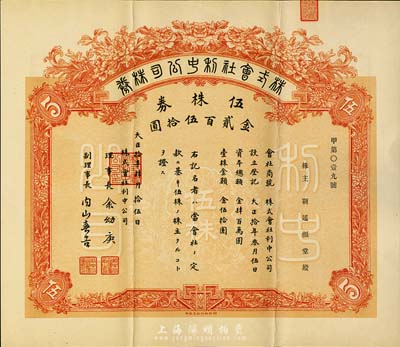 株式會社利中公司株券
伍株券
金貳百伍拾圓
甲第〇壹九號
株主 謝延禧堂殿
會社商號 株式會社利中公司
設立登記 大正拾年叁月伍日
資本總額 金肆百萬圓
壹株金額 金伍拾圓
右記名者ハ當會社ノ定
款ニ基キ伍株ノ株主タルコト
ヲ證ス
大正拾年肆月拾伍日
株式會社利中公司
理事長 余幼庚
副理事長 內山
伍
5
伍
5
利中
伍株
上海陽明拍賣